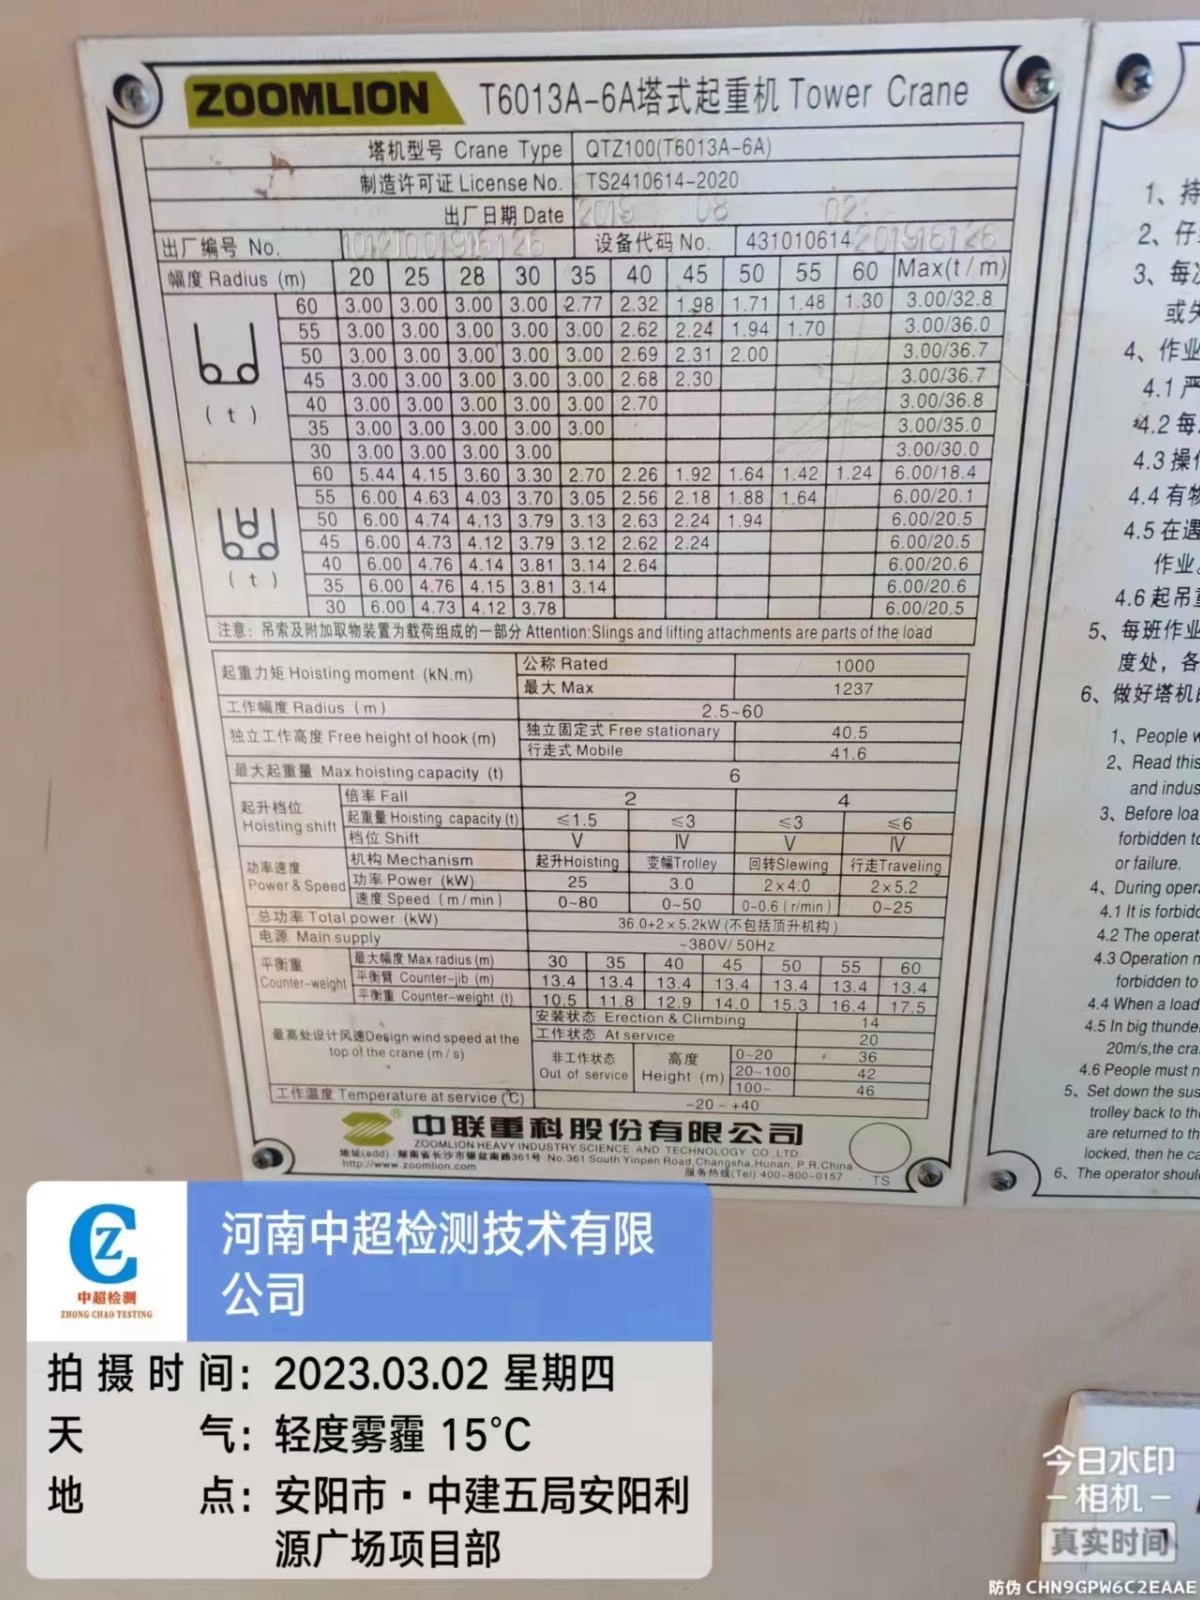 ZOOMLION T6013A-6A塔式起重机 Tower Crane
塔机型号 Crane Type QTZ100(T6013A-6A)
制造许可证 License No. TS2410614-2020
出厂日期 Date 2019 08 02
出厂编号 No. 设备代码 No. 431010614
幅度 Radius (m) 20 25 28 30 35 40 45 50 55 60 Max(t/m)
60 3.00 3.00 3.00 3.00 2.77 2.32 1.98 1.71 1.48 1.30 3.00/32.8
55 3.00 3.00 3.00 3.00 3.00 2.62 2.24 1.94 1.70 3.00/36.0
50 3.00 3.00 3.00 3.00 3.00 2.69 2.31 2.00 3.00/36.7
45 3.00 3.00 3.00 3.00 3.00 2.68 2.30 3.00/36.7
40 3.00 3.00 3.00 3.00 3.00 2.70 3.00/36.8
(t)
35 3.00 3.00 3.00 3.00 3.00 3.00/35.0
30 3.00 3.00 3.00 3.00 3.00/30.0
60 5.44 4.15 3.60 3.30 2.70 2.26 1.92 1.64 1.42 1.24 6.00/18.4
55 6.00 4.63 4.03 3.70 3.05 2.56 2.18 1.88 1.64 6.00/20.1
50 6.00 4.74 4.13 3.79 3.13 2.63 2.24 1.94 6.00/20.5
45 6.00 4.73 4.12 3.79 3.12 2.62 2.24 6.00/20.5
40 6.00 4.76 4.14 3.81 3.14 2.64 6.00/20.6
(t)
35 6.00 4.76 4.15 3.81 3.14 6.00/20.6
30 6.00 4.73 4.12 3.78 6.00/20.5
注意：吊索及附加取物装置为载荷组成的一部分 Attention:Slings and lifting attachments are parts of the load
起重力矩 Hoisting moment (kN.m) 公称 Rated 1000
最大 Max 1237
工作幅度 Radius (m) 2.5~60
独立工作高度 Free height of hook (m) 独立固定式 Free stationary 40.5
行走式 Mobile 41.6
最大起重量 Max hoisting capacity (t) 6
起升档位 Hoisting shift 倍率 Fall 2 4
起重量 Hoisting capacity (t) ≤1.5 ≤3 ≤3 ≤6
档位 Shift V IV V IV
功率速度 Power & Speed 机构 Mechanism 起升Hoisting 变幅Trolley 回转Slewing 行走Traveling
功率 Power (kW) 25 3.0 2×4.0 2×5.2
速度 Speed (m/min) 0~80 0~50 0~0.6 (r/min) 0~25
总功率 Total power (kW) 36.0+2×5.2kW (不包括顶升机构)
电源 Main supply ~380V/50Hz
平衡重 Counter-weight 最大幅度 Max radius (m) 30 35 40 45 50 55 60
平衡臂 Counter-jib (m) 13.4 13.4 13.4 13.4 13.4 13.4 13.4
平衡重 Counter-weight (t) 10.5 11.8 12.9 14.0 15.3 16.4 17.5
最高处设计风速Design wind speed at the top of the crane (m/s) 安装状态 Erection & Climbing 14
工作状态 At service 20
非工作状态 Out of service 高度 Height (m) 0~20 36
20~100 42
100~ 46
工作温度 Temperature at service (℃) -20 ~ +40
® 中联重科股份有限公司
ZOOMLION HEAVY INDUSTRY SCIENCE AND TECHNOLOGY CO.,LTD.
地址(add)：湖南省长沙市银盆南路361号 No.361 South Yinpen Road,Changsha,Hunan, P.R.China
http://www.zoomlion.com 服务热线(Tel):400-800-0157 TS
1、持
2、仔
3、每
或
4、作业
4.1 严
4.2 每
4.3 操
4.4 有
4.5 在遇
作业。
4.6 起吊
5、每班作业
度处，各
6、做好塔机
1、People
2、Read this
and indus
3、Before loa
forbidden to
or failure.
4、During opera
4.1 It is forbid
4.2 The operat
4.3 Operation
forbidden to
4.4 When a load
4.5 In big thunder
20m/s,the cra
4.6 People must
5、Set down the sus
trolley back to the
are returned to th
locked, then he ca
6、The operator shoul
中超检测
ZHONG CHAO TESTING
河南中超检测技术有限
公司
拍摄时间：2023.03.02 星期四
天气：轻度雾霾 15℃
地点：安阳市·中建五局安阳利
源广场项目部
今日水印
-相机-
真实时间
防伪 CHN9GPW6C2EAAE